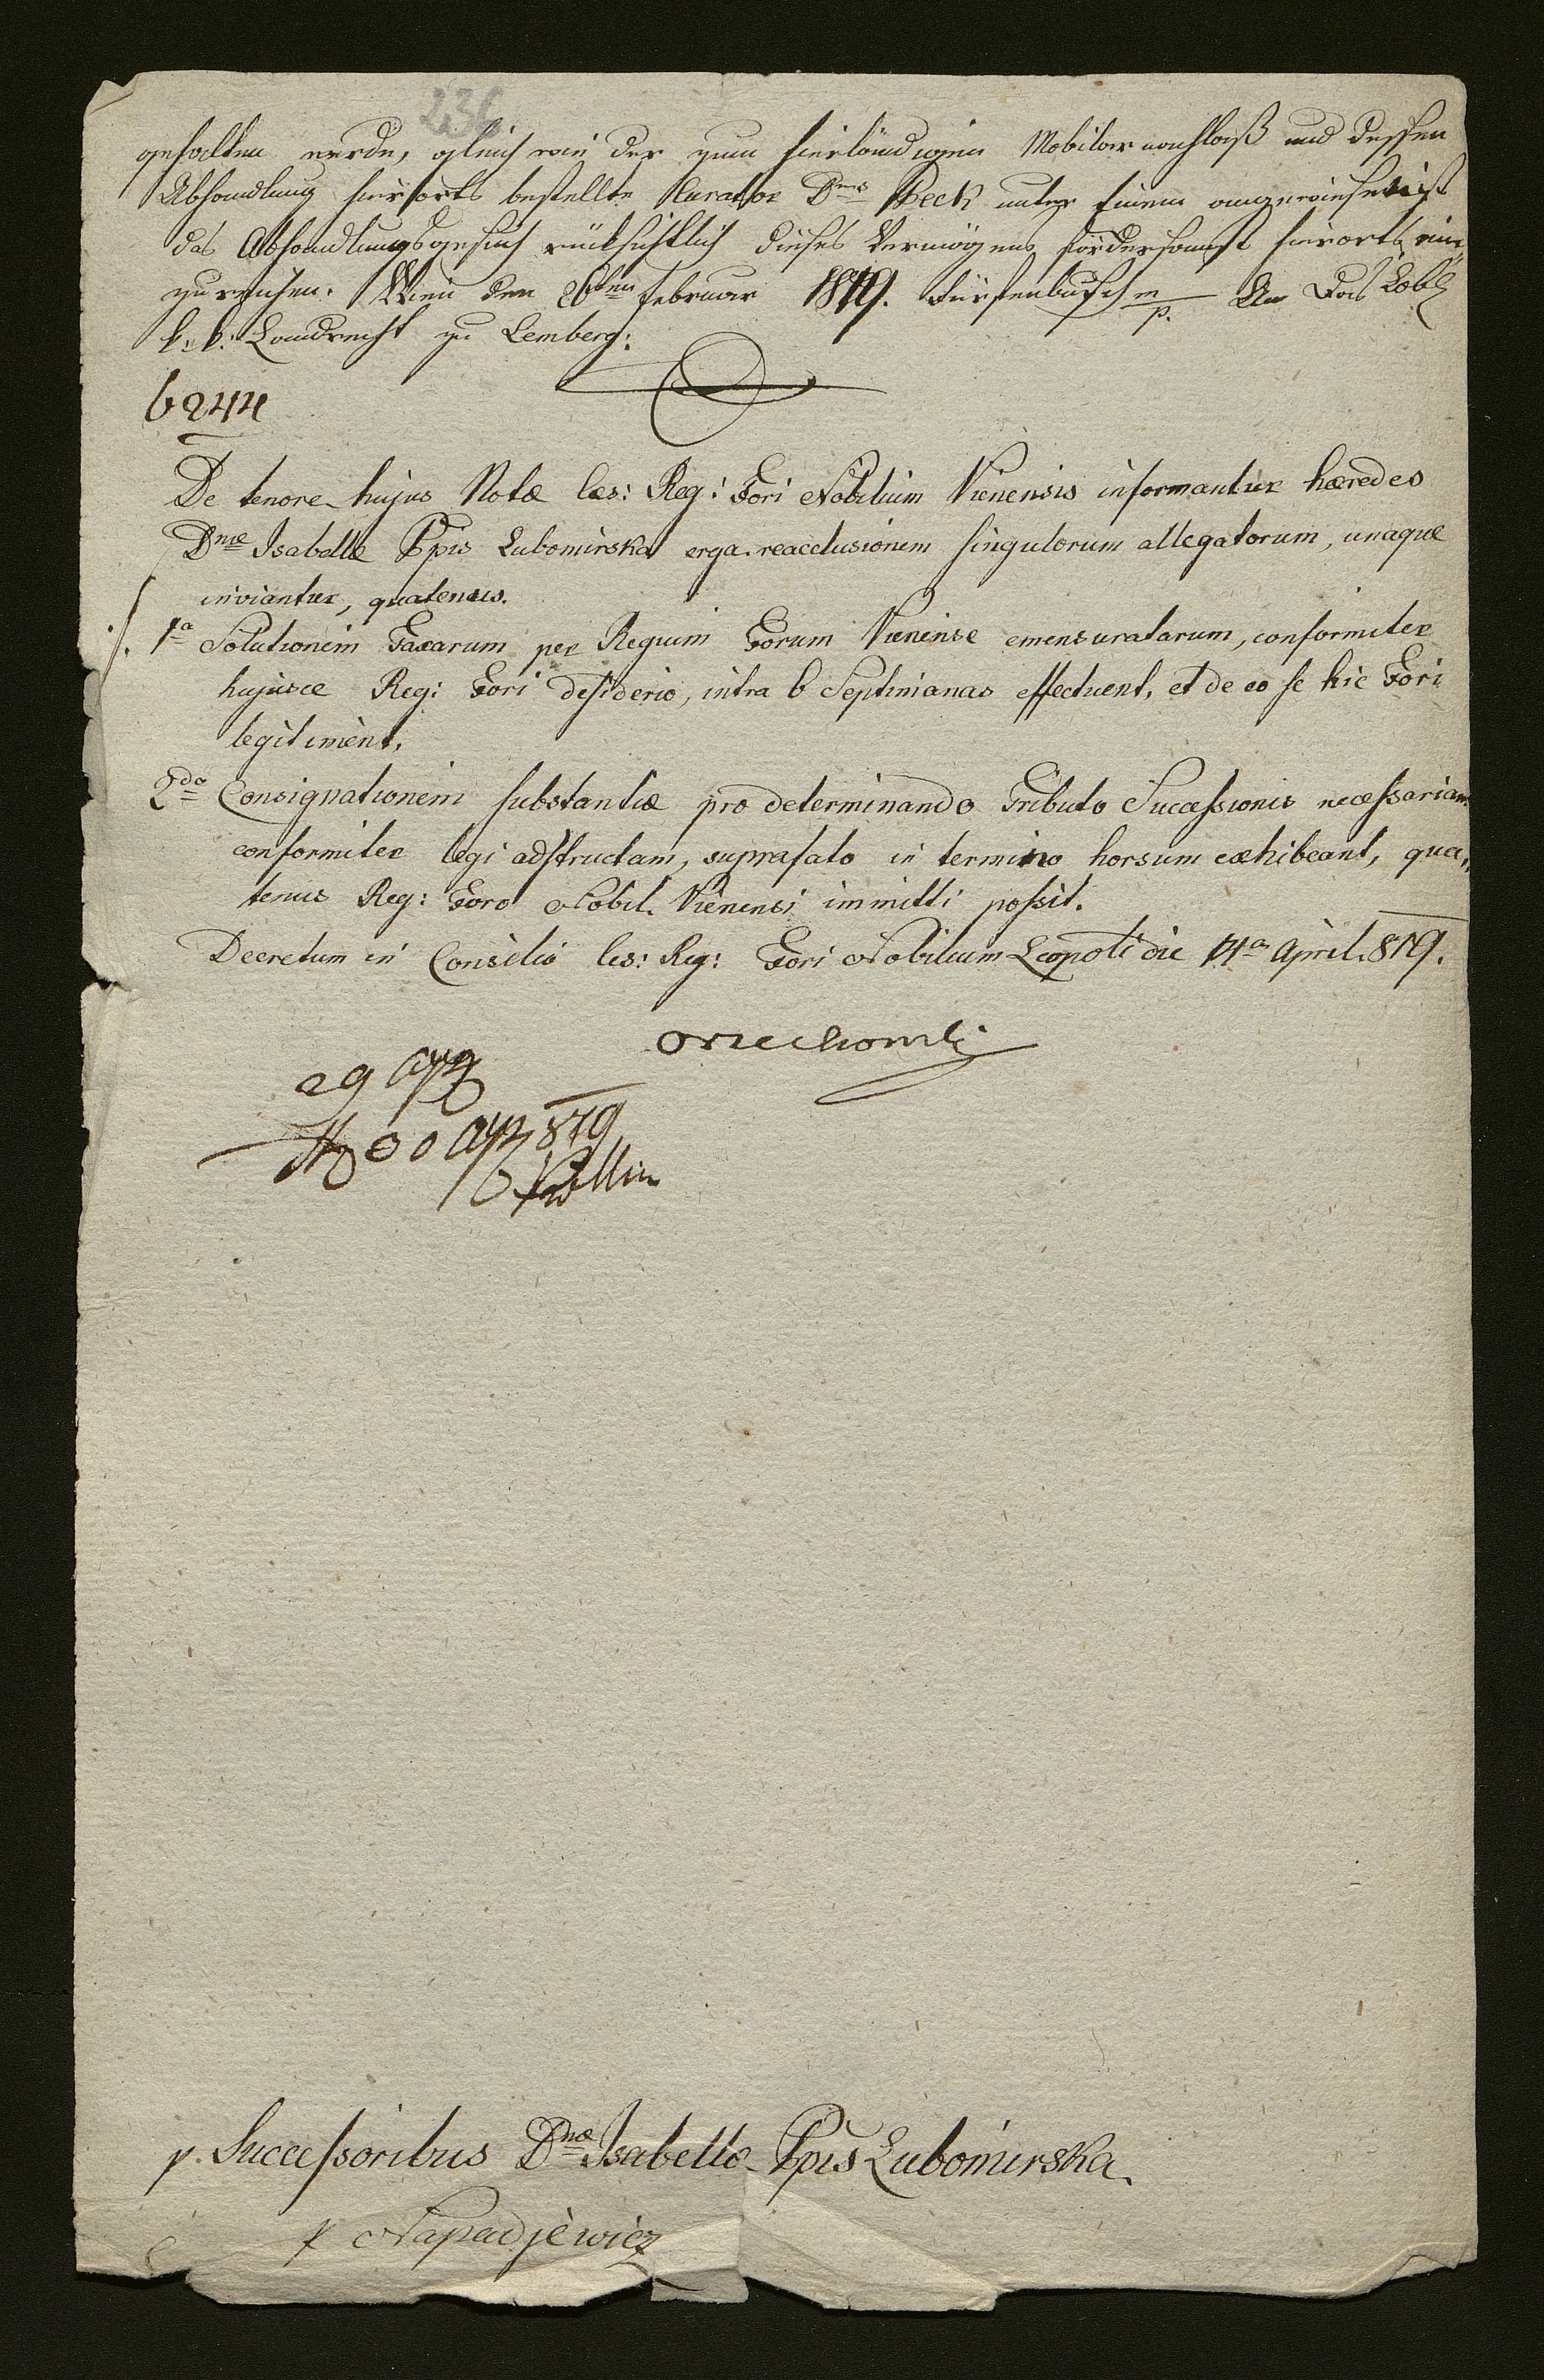 236
gehalten werde, gleich wie der zum hierländigen Mobilar nachlaß und dessen
Abhandlung hierorts bestellte Curator Dr Beck unter Einem angewiesen ist
das Abhandlungsgesuch rücksichtlich dieses Vermögens fördersamst hierorts ein
zureichen. Wien den 26ten Februar 1819. Fürstenbusch m/p. An das Löbl
k: k: Landrecht zu Lemberg:
6244
De tenore hujus Notæ Cæs: Reg: Fori Nobilium Vienensis informantur hæredes
Dnæ Isabellæ Ppis Lubomirska erga reacclusionem singulorum allegatorum, unaque
inviantur, quatenus.
./. 1a Solutionem Taxarum per Regium Forum Vienense emensuratarum, conformiter
hujusce Reg: Fori desiderio, intra 6 Septimanas effectuent, et de eo se hic Fori
legitiment,
2do Consignationem substantiæ pro determinando Tributo Successionis necessariam
conformiter legi adstructam, suprafato in termino horsum exhibeant, qua„
tenus Reg: Foro Nobil. Vienensi immitti possit.
Decretum in Consilio Ces: Reg: Fori Nobilium Leopoli die 14a April. 819.
Orzechowski
29 Apr
30 Apr 819
p. Successoribus Dnæ Isabellæ Ppis Lubomirska.
p Napadjewicz